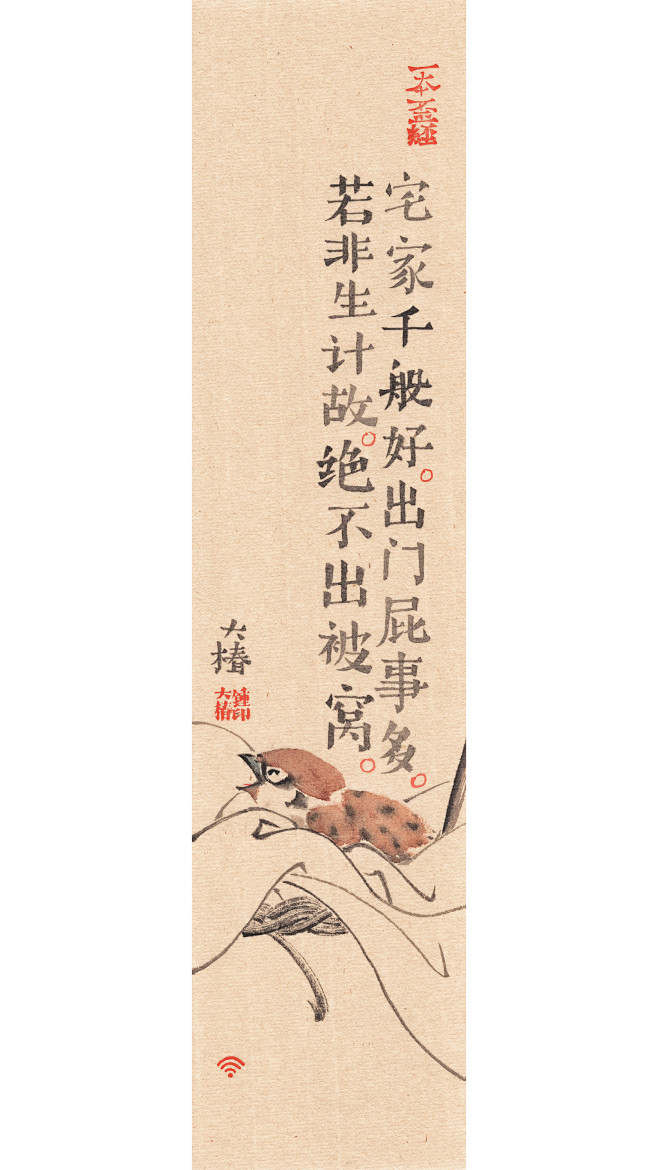 一本歪經
宅家千般好。出门屁事多。
若非生计故。绝不出被窝。
大椿
鍾印
大椿